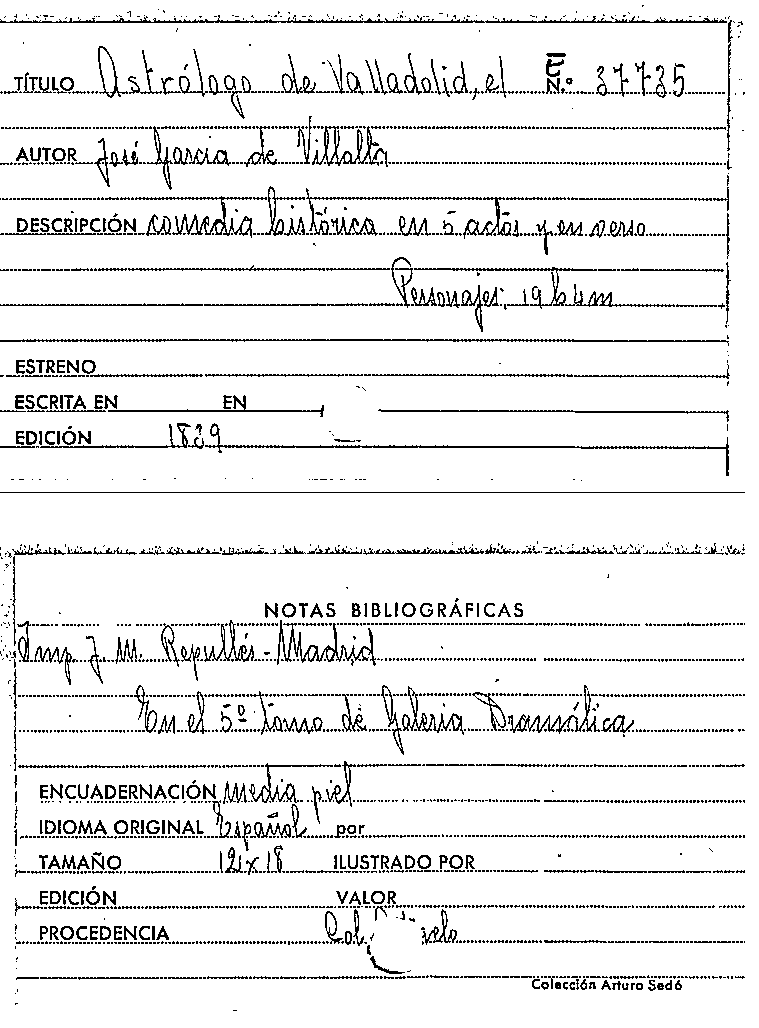 TÍTULO Astrólogo de Valladolid, el E N.º 37735
AUTOR José García de Villalta
DESCRIPCIÓN comedia histórica en 5 actos y en verso
Personajes: 19 h 4 m
ESTRENO
ESCRITA EN EN
EDICIÓN 1839
NOTAS BIBLIOGRÁFICAS
Imp J. M. Repullés - Madrid
En el 5º tomo de Galeria Dramática
ENCUADERNACIÓN media piel
IDIOMA ORIGINAL Español por
TAMAÑO 12 x 18 ILUSTRADO POR
EDICIÓN VALOR
PROCEDENCIA Col.
Colección Arturo Sedó